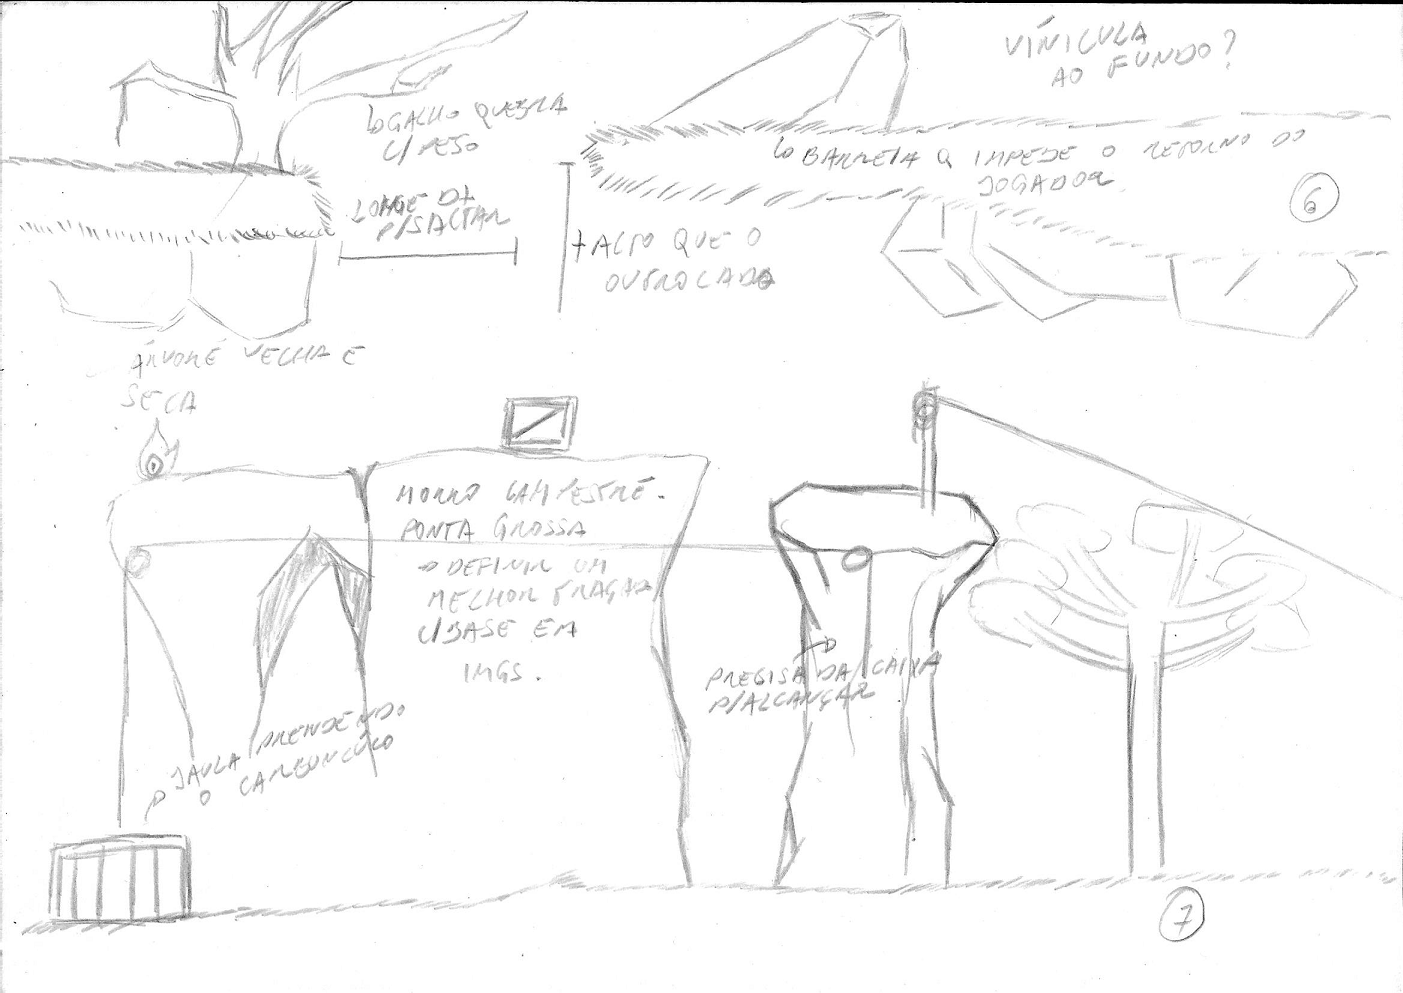 VÍNICULA
AO FUNDO?
↳ GALHO QUEBRA
C/ PESO
↳ BARREIA Q IMPEDE O RETORNO DO
JOGADOR
6
LONGE D+
P/SALTAR
+ ALTO QUE O
OUTRO LADO
ÁRVORE VELHA E
SECA
MORRO CAMPESTRE.
PONTA GROSSA
→ DEFINIR UM
MELHOR TRAÇADO
C/BASE EM
IMGS.
PRECISA DA CAIXA
P/ALCANÇAR
JAULA PRENDENDO
O CARBUNCÚLO
7